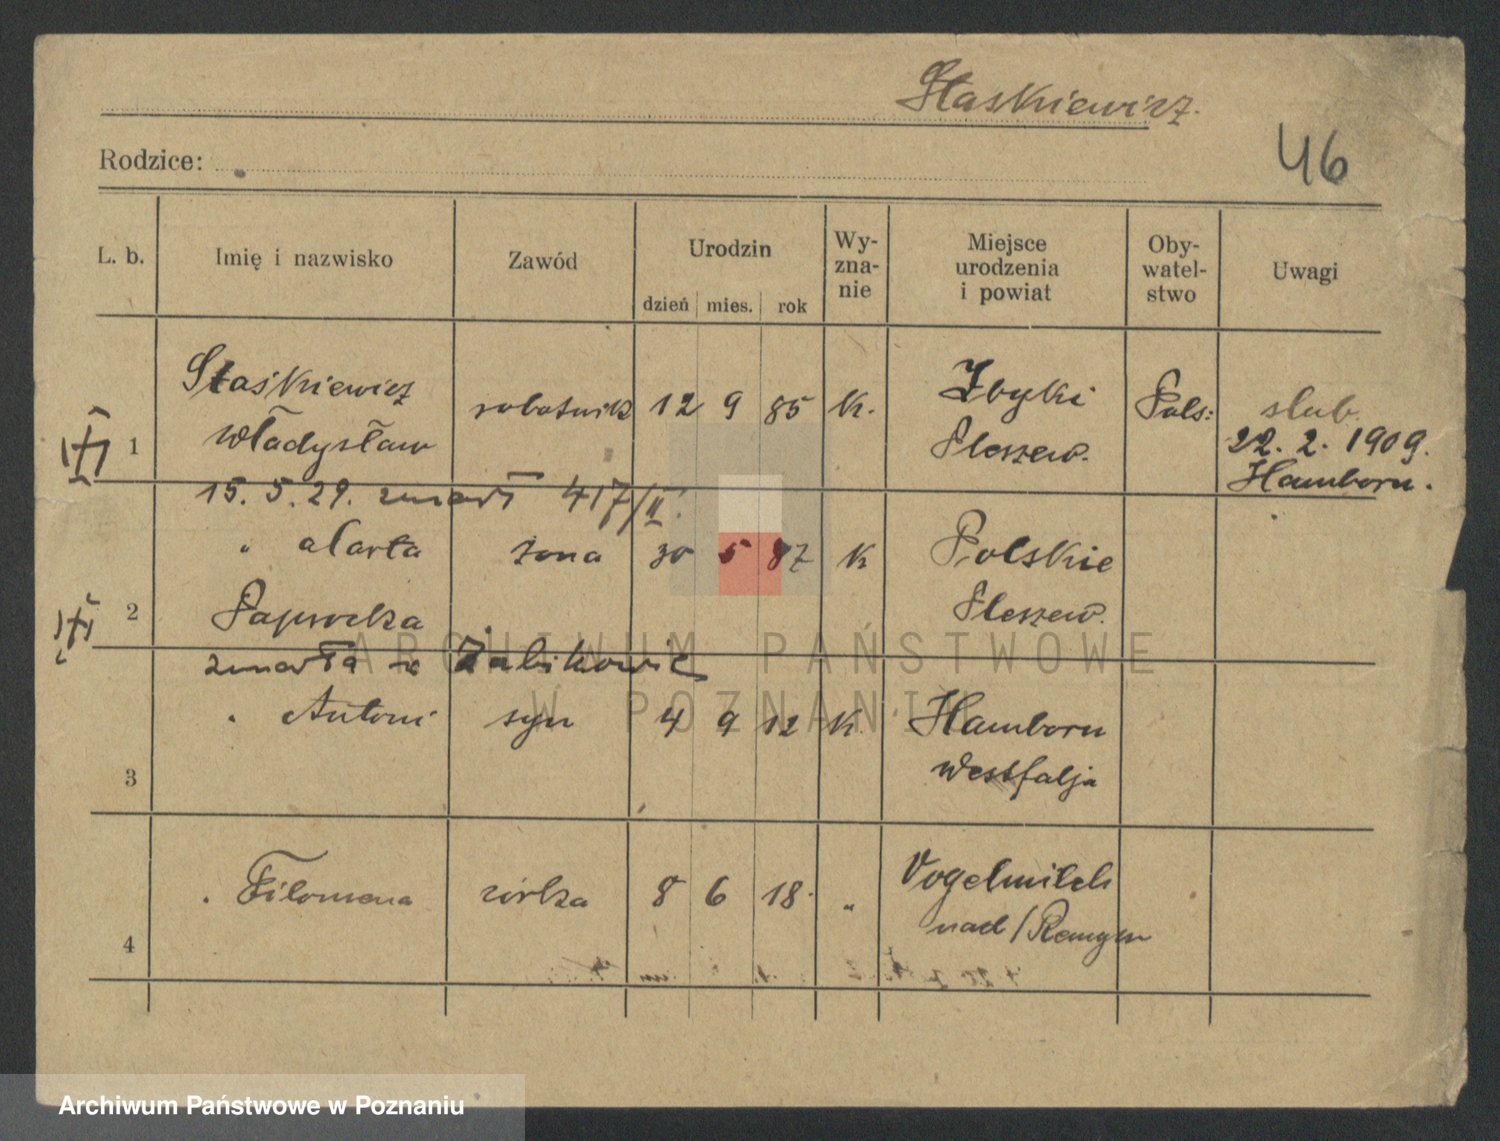 Staskiewicz
Rodzice:
46
L. b. Imię i nazwisko Zawód Urodzin Wy-zna-nie Miejsce urodzenia i powiat Oby-watel-stwo Uwagi
dzień mies. rok
Staśkiewicz
1 Władysław robotnik 12 9 85 K. Zbyki Pleszew. Pols: slub. 22. 2. 1909. Hamborn.
15. 5. 29. zmarł 417/II.
" Marta żona 30 5 87 K Polskie
2 Paprocka Pleszew.
zmarła w Żabikowie
" Antoni syn 4 9 12 K. Hamborn
3 Westfalja
" Filomena córka 8 6 18 " Vogelmilch
4 nad/Renym
ARCHIWUM PAŃSTWOWE
W POZNANIU
Archiwum Państwowe w Poznaniu